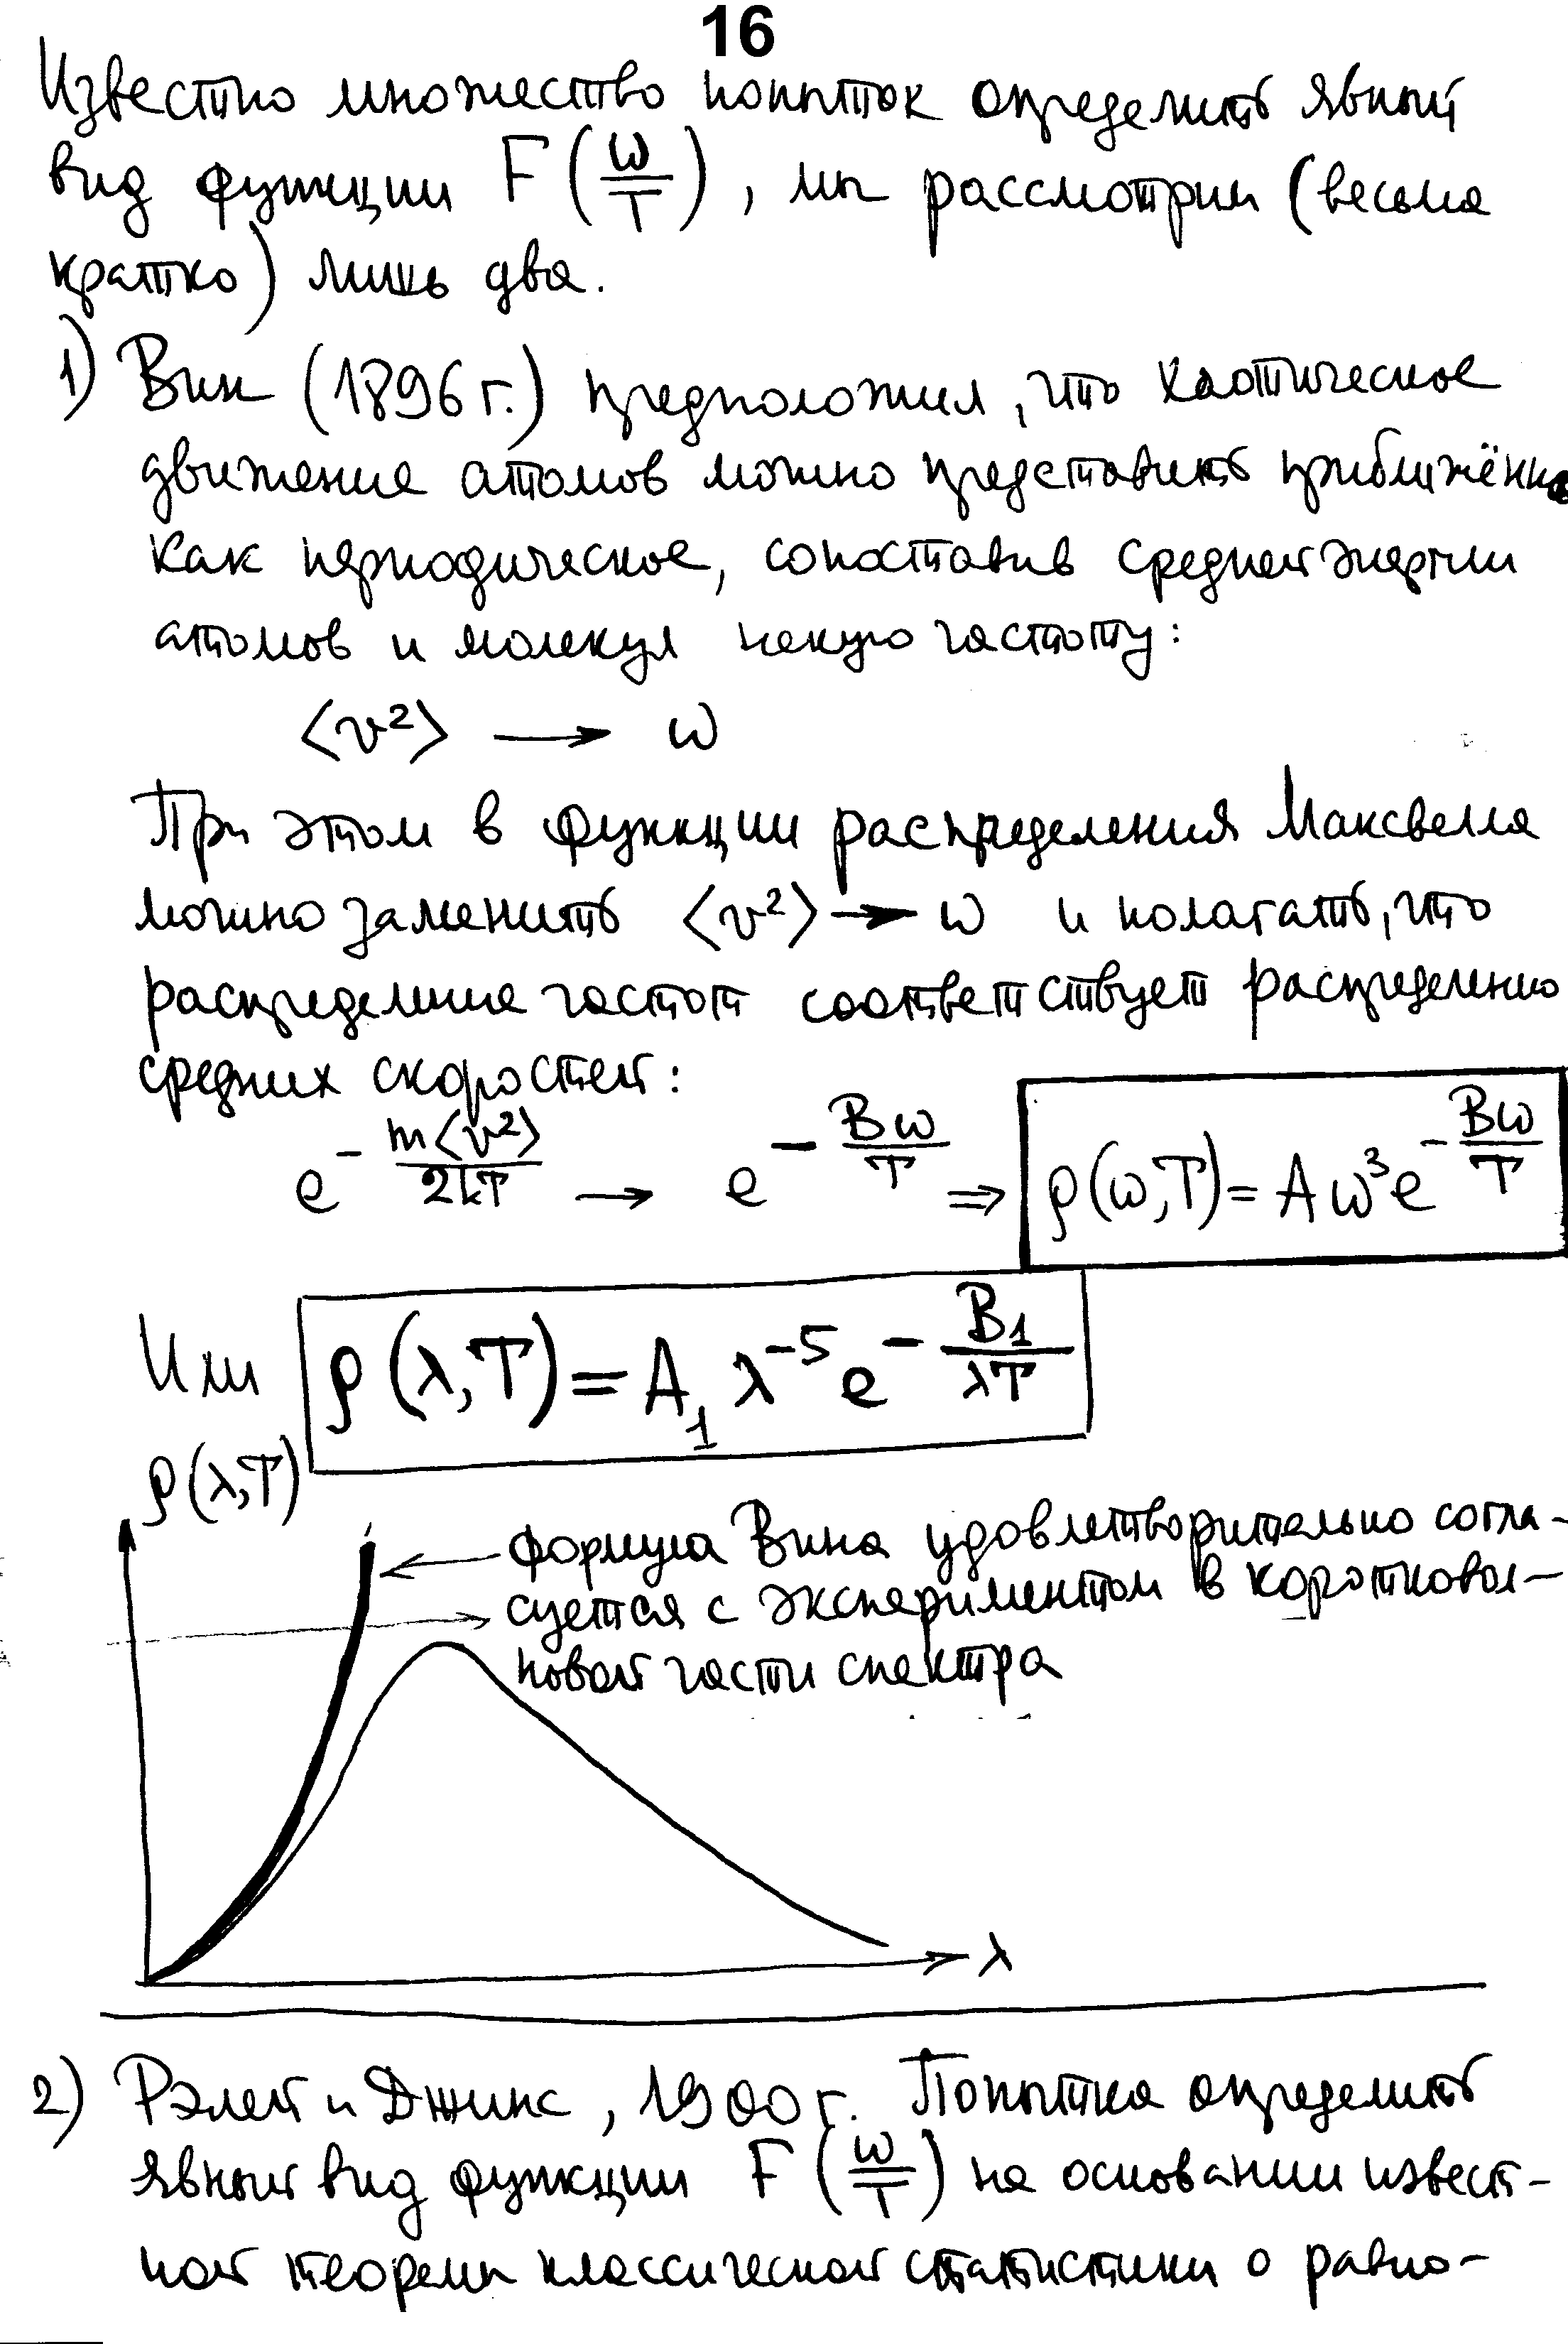 16
Известно множество попыток определить явный
вид функции F(ω/T), мы рассмотрим (весьма
кратко) лишь два.
1) Вин (1896 г.) предположил, что хаотическое
движение атомов можно представить приближённо
как периодическое, сопоставив средней энергии
атомов и молекул некую частоту:
⟨v²⟩ → ω
При этом в функции распределения Максвелла
можно заменить ⟨v²⟩ → ω и полагать, что
распределение частот соответствует распределению
средних скоростей:
e^(-m⟨v²⟩/2kT) → e^(-Bω/T) ⇒ ρ(ω,T) = Aω³e^(-Bω/T)
Или ρ(λ,T) = A₁λ⁻⁵e^(-B₁/λT)
ρ(λ,T)
формула Вина удовлетворительно согла-
суется с экспериментом в коротковол-
новой части спектра
λ
2) Рэлей и Джинс, 1900 г. Попытка определить
явный вид функции F(ω/T) на основании извест-
ной теоремы классической статистики о равно-